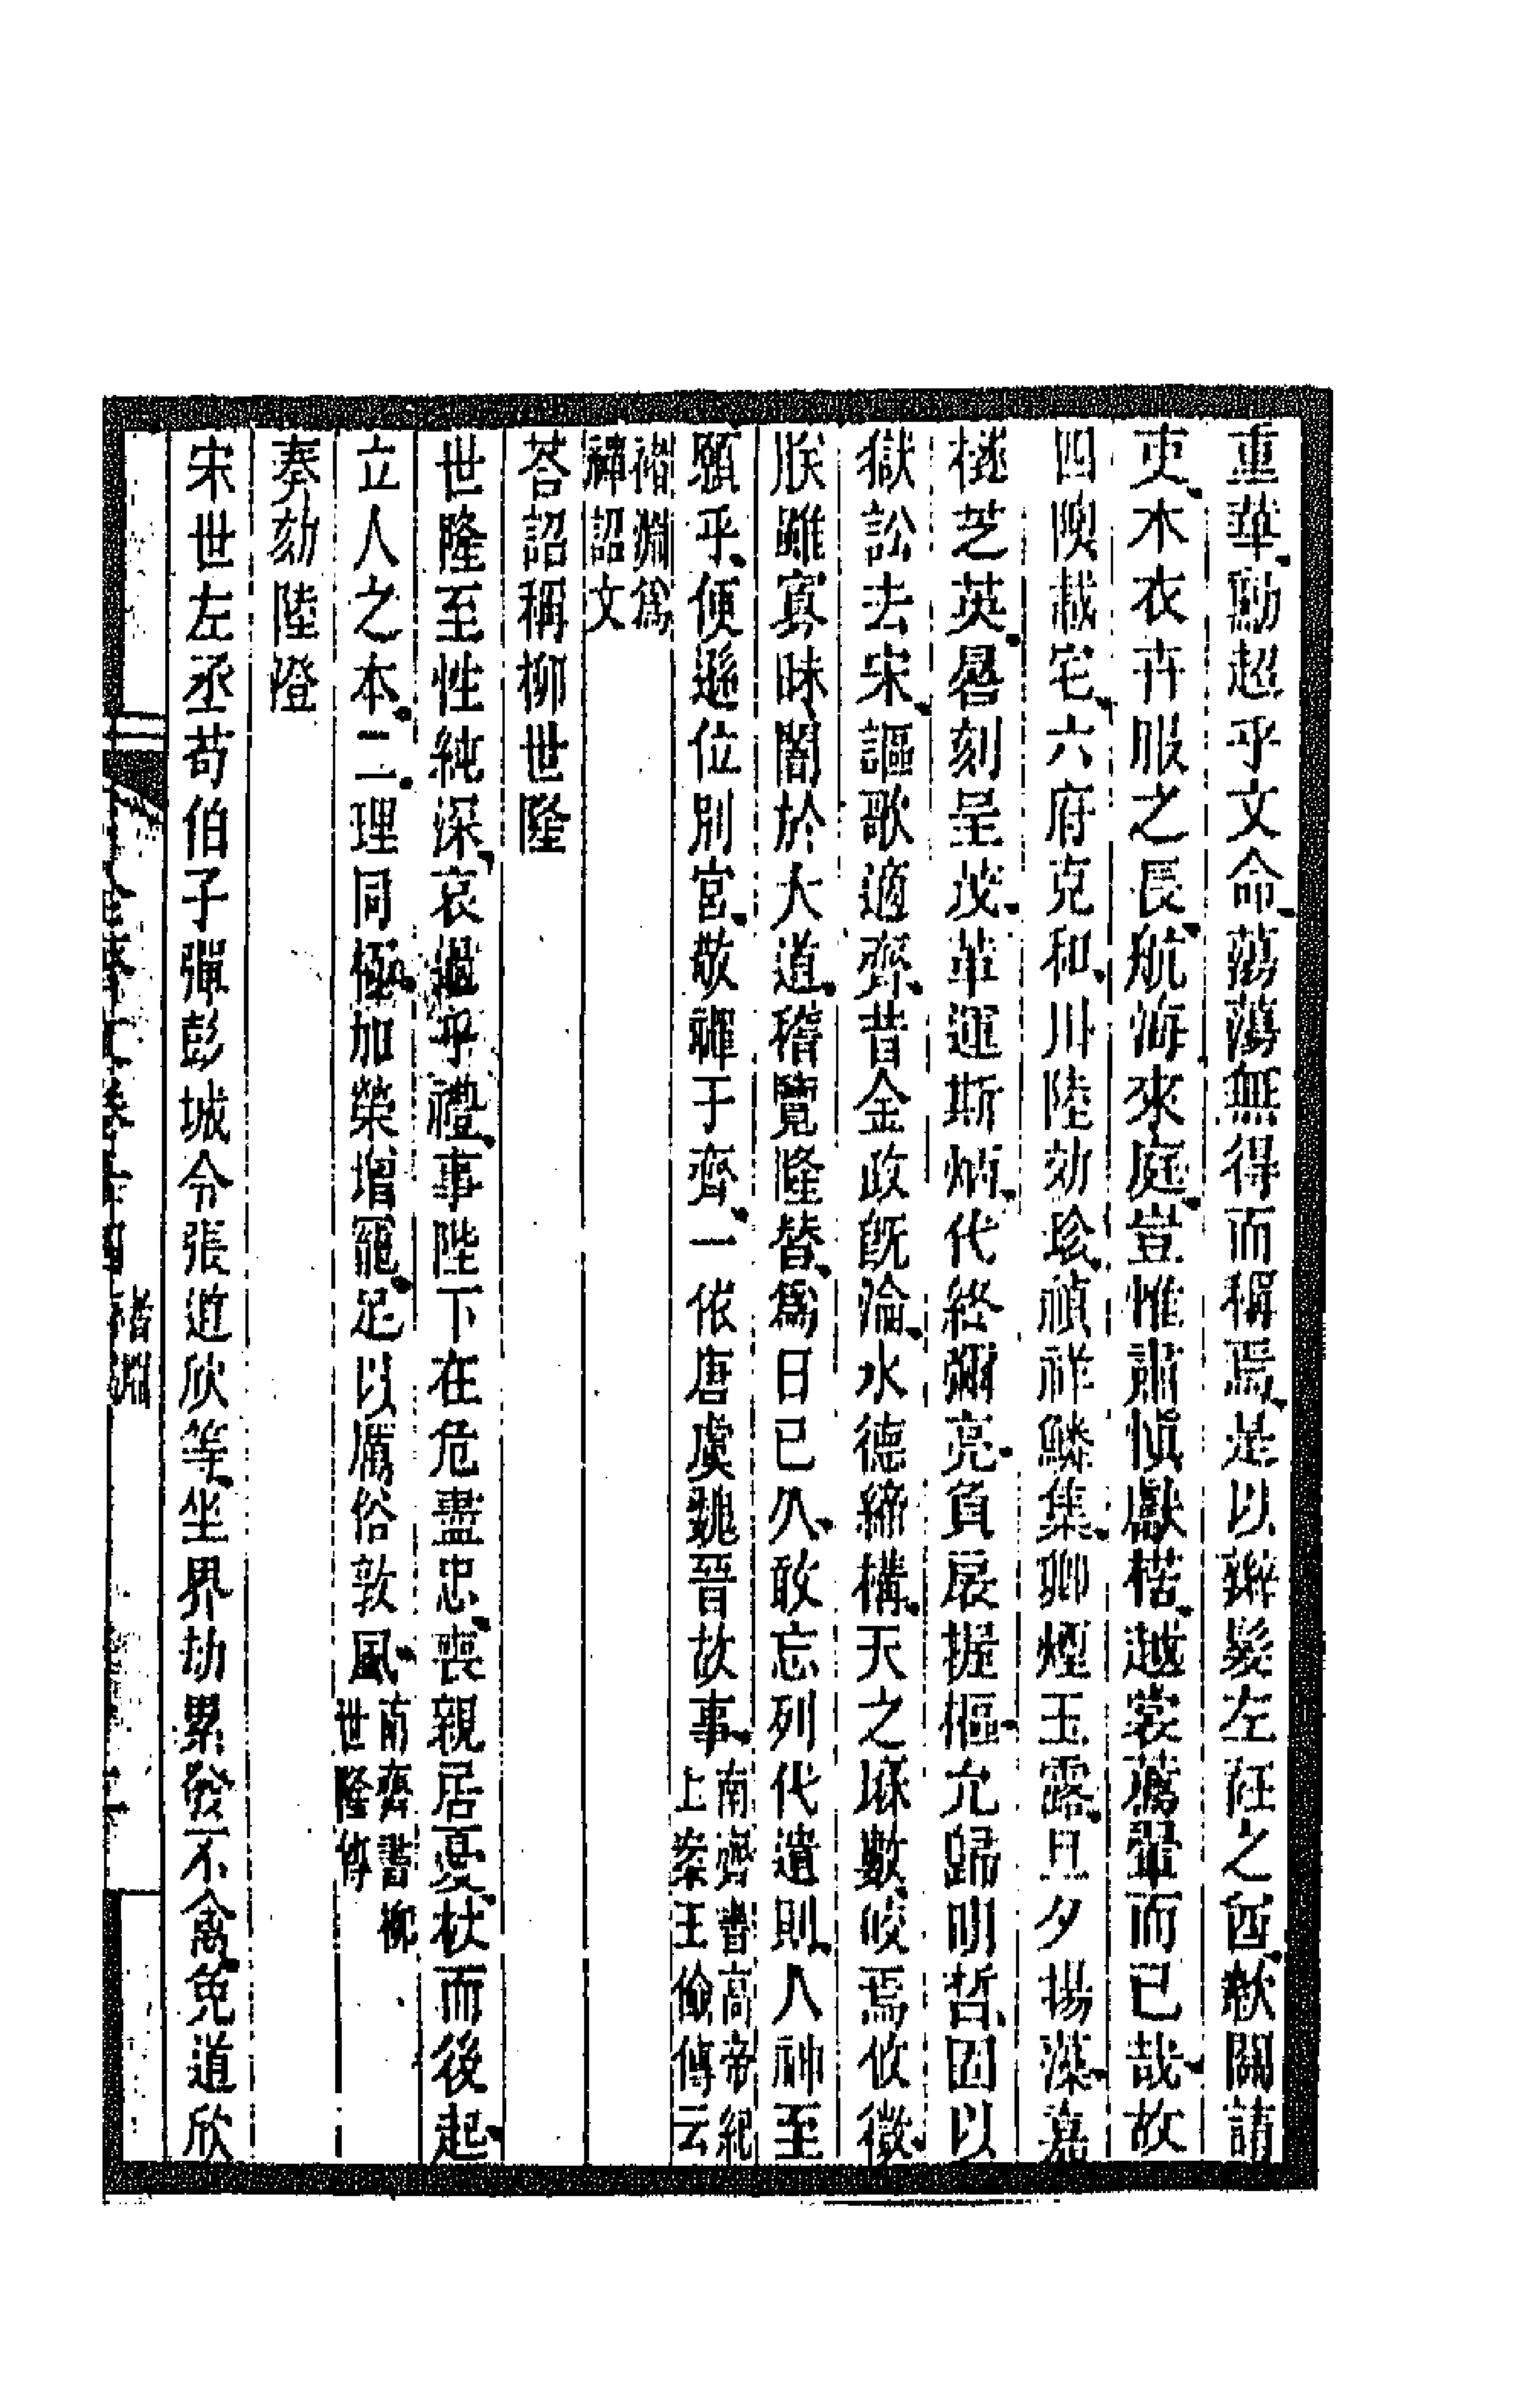 重華勳超乎文命蕩蕩無得而稱焉是以辮髮左衽之酋款關請
吏木衣卉服之長航海來庭豈惟肅慎獻楛越裳薦翬而已哉故
四隩載宅六府克和川陸効珍禎祥鱗集卿煙玉露旦夕揚藻嘉
穟芝英晷刻呈茂革運斯炳代終彌亮負扆握樞允歸明哲固以
獄訟去宋謳歌適齊昔金政既淪水德締構天之厤數皎焉攸徵
朕雖寡昧闇於大道稽覽隆替爲日已久敢忘列代遺則人神至
願乎便遜位別宮敬禪于齊一依唐虞魏晉故事南齊書高帝紀
上案王儉傳云
褚淵爲
禪詔文
荅詔稱柳世隆
世隆至性純深哀過乎禮事陛下在危盡忠喪親居憂杖而後起
立人之本二理同極加榮增寵足以厲俗敦風南齊書柳
世隆傳
奏劾陸澄
宋世左丞荀伯子彈彭城令張道欣等坐界劫累發不禽免道欣
全齊文卷十四
褚淵